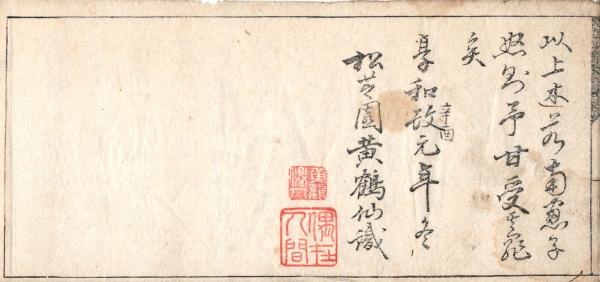 以上述若子
怒則予甘受其罪
矣
享和改元辛酉年冬
松芝園黄鶴仙識
偶在人間